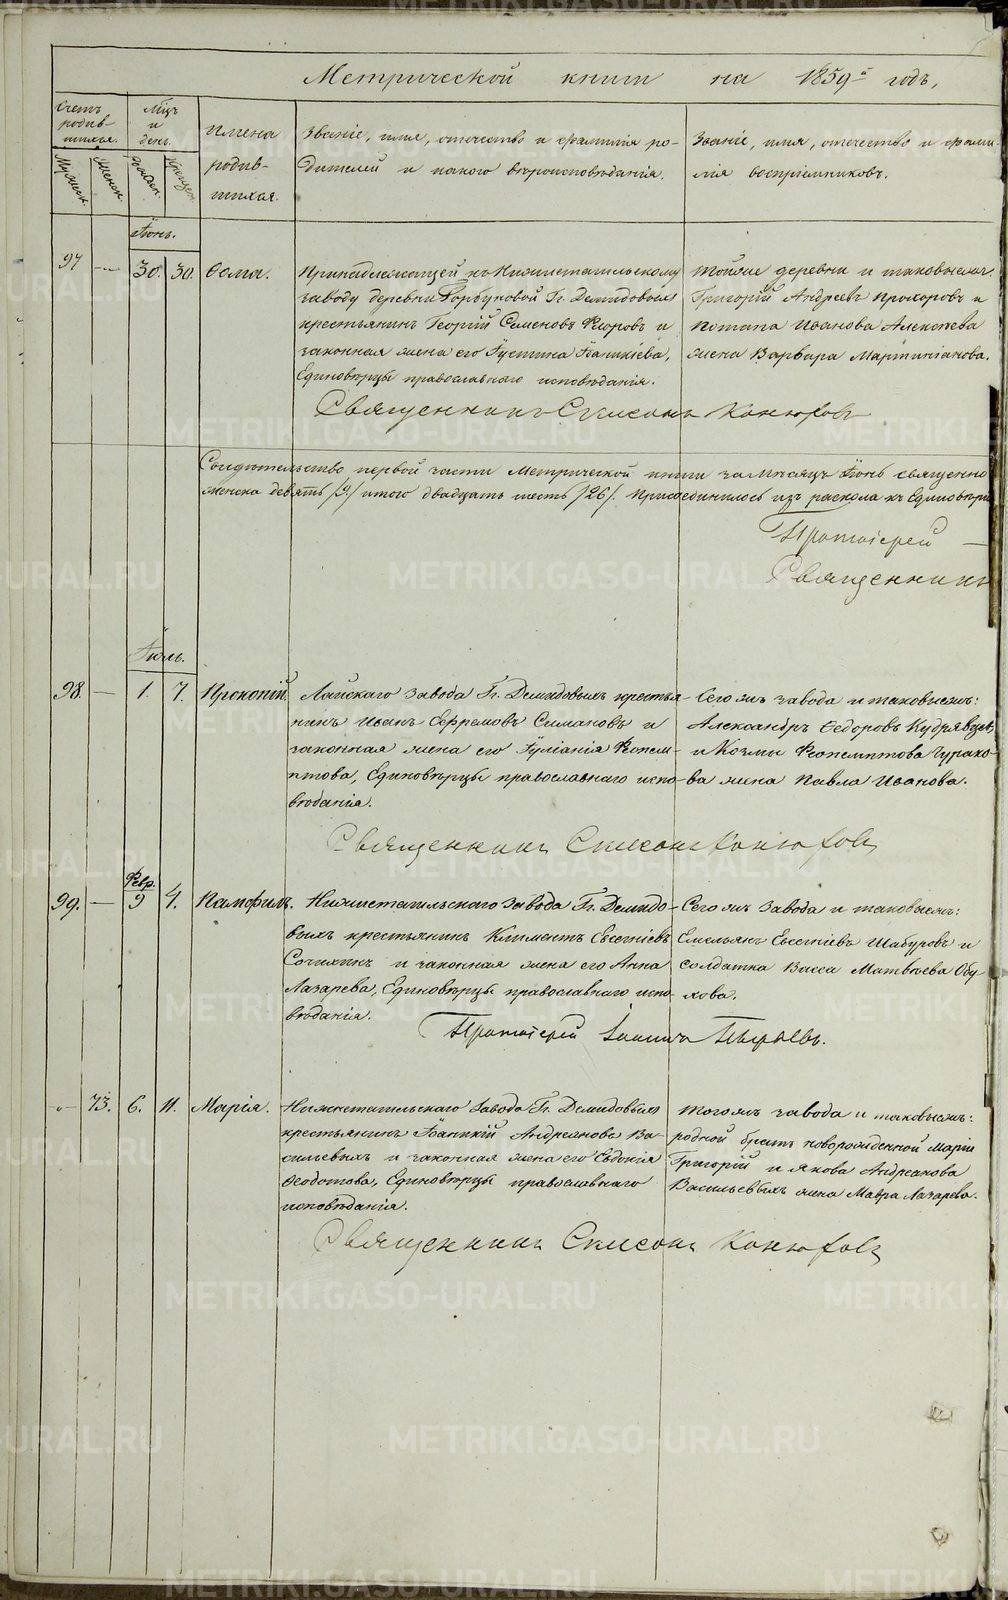 Метрической книги на 1859-й годъ,
Счетъ родив-шихся.
Мужеск.
Женск.
Мѣсяцъ и день.
рожден.
крещен.
Имена родив-шихся.
Званіе, имя, отчество и фамилія ро-
дителей и какого вѣроисповѣданія.
Званіе, имя, отчество и фами-
лія воспріемниковъ.
Іюнь.
97 — 30. 30. Ѳома.
Принадлежащей къ Нижнетагильскому
заводу деревни Горбуновой Гг. Демидовыхъ
крестьянинъ Георгій Семеновъ и
законная жена его Іустина
Единовѣрцы православнаго исповѣданія.
Тойже деревни и таковыежъ:
Григорій Андреевъ Прохоровъ и
Потапа Иванова Алексѣева
жена Варвара Мартиніанова.
Священникъ Симеонъ Конюховъ
Свидѣтельство первой части Метрической книги за мѣсяцъ Іюнь священно
женска девять /9/ итого двадцать шесть /26/. Присоединилось изъ раскола къ Единовѣрі
Протоіерей —
Священникъ
Іюль.
98. — 1. 7. Прокопій.
Лайскаго завода Гг. Демидовыхъ крестья-
нинъ Иванъ Ефремовъ Симановъ и
законная жена его Іуліанія Ѳеопем-
птова, Единовѣрцы православнаго испо-
вѣданія.
Сегожъ завода и таковыежъ:
Александръ Ѳедоровъ Кудрявцевъ
и Козмы Ѳеопемптова Чурако-
ва жена Павла Иванова.
Священникъ Симеонъ Конюховъ
Февр.
99. — 9 4. Памфилъ.
Нижнетагильскаго Завода Гг. Демидо-
выхъ крестьянинъ Климентъ Евсегніевъ
и законная жена его Анна
Лазарева, Единовѣрцы православнаго испо-
вѣданія.
Сегожъ Завода и таковыежъ:
Емельянъ Евсегніевъ Шабуровъ и
солдатка Васса Матвѣева Обу-
хова.
Протоіерей Іоаннъ Пырьевъ.
— 73. 6. 11. Марія.
Нижнетагильскаго Завода Гг. Демидовыхъ
крестьянинъ Іоанникій Андреановъ Ва-
сильевыхъ и законная жена его Евдокія
Ѳеодотова, Единовѣрцы православнаго
исповѣданія.
Тогожъ завода и таковыежъ:
родной братъ новорожденной Маріи
Григорій и Якова Андреанова
Васильевыхъ жена Мавра Лазарева.
Священникъ Симеонъ Конюховъ
METRIKI.GASO-URAL.RU